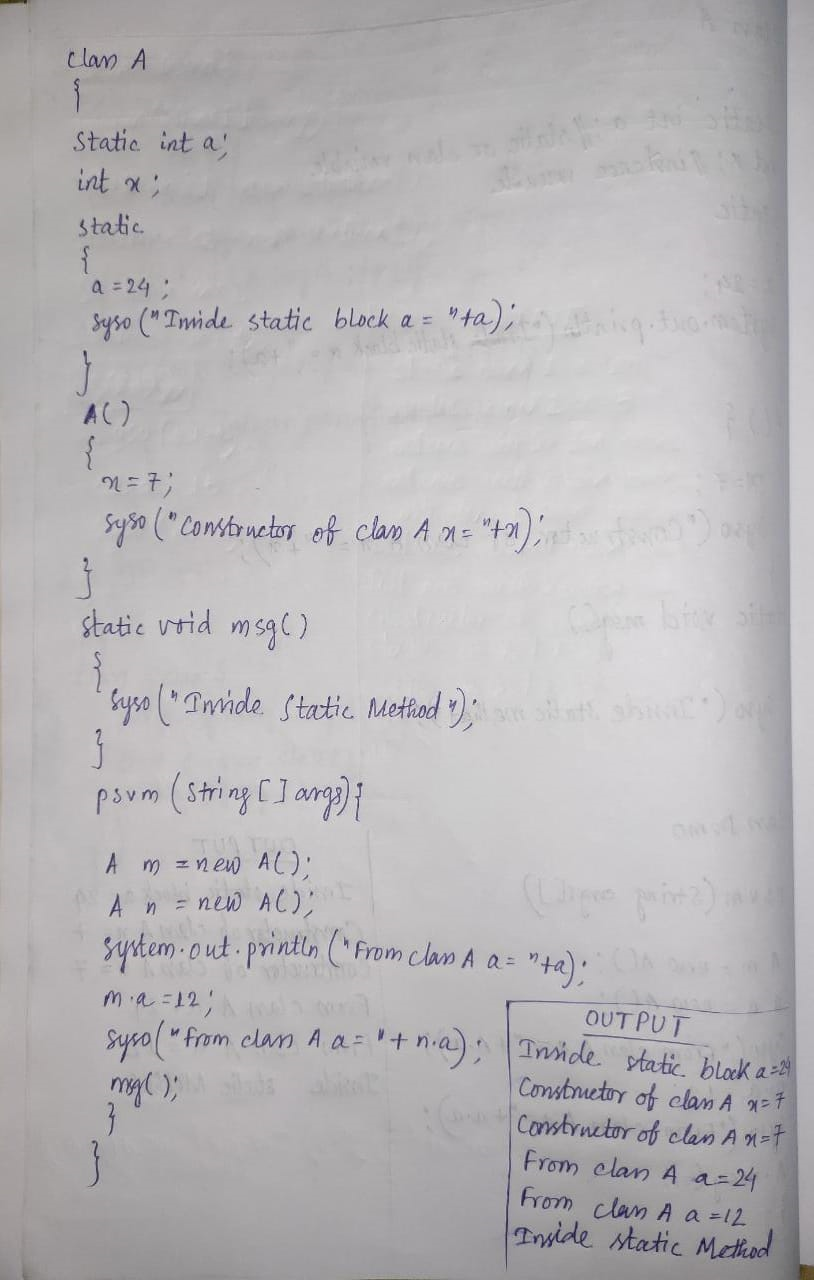 class A
{
Static int a;
int x;
static
{
a = 24;
syso ("Inside static block a = "+a);
}
A()
{
x = 7;
syso ("Constructor of class A x = "+x);
}
static void msg()
{
syso ("Inside Static Method");
}
psvm (String [] args){
A m = new A();
A n = new A();
System.out.println ("From class A a = "+a);
m.a = 12;
syso ("From class A a = "+ n.a);
msg();
}
}
OUTPUT
Inside static block a = 24
Constructor of class A x = 7
Constructor of class A x = 7
From class A a = 24
From class A a = 12
Inside static Method